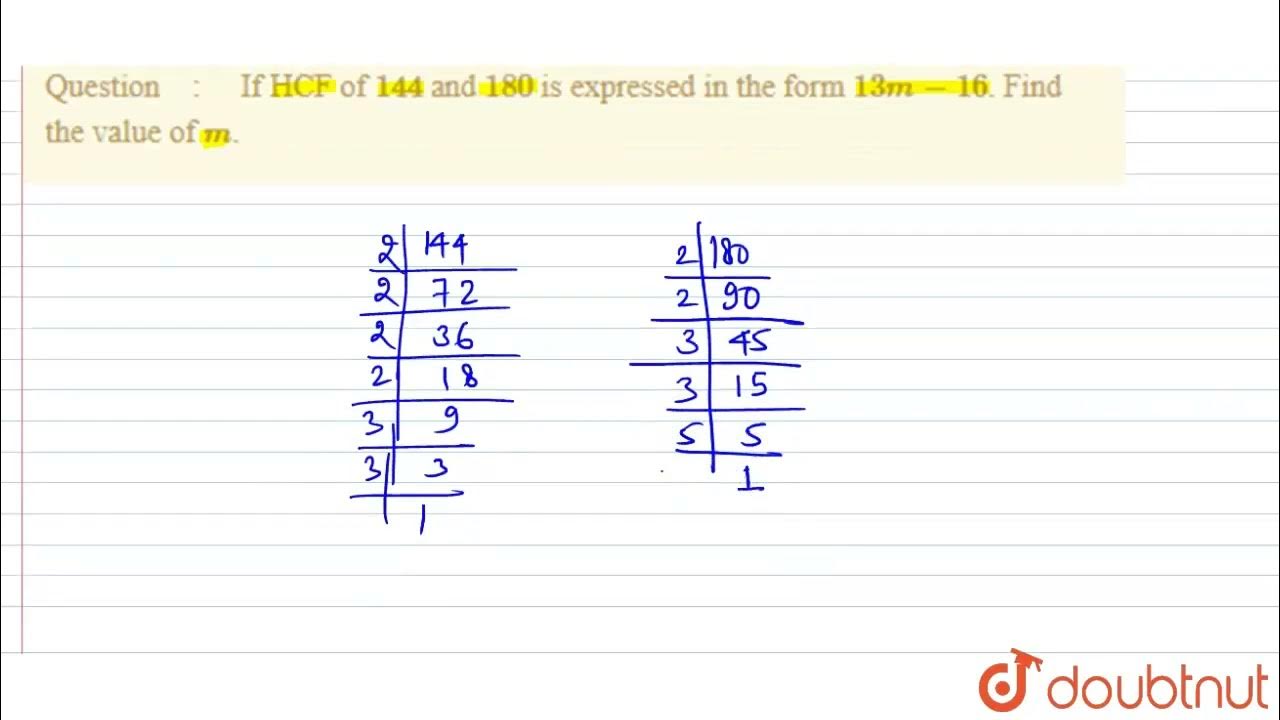 Question : If HCF of 144 and 180 is expressed in the form 13m − 16. Find
the value of m.
2 144
2 72
2 36
2 18
3 9
3 3
1
2 180
2 90
3 45
3 15
5 5
1
doubtnut